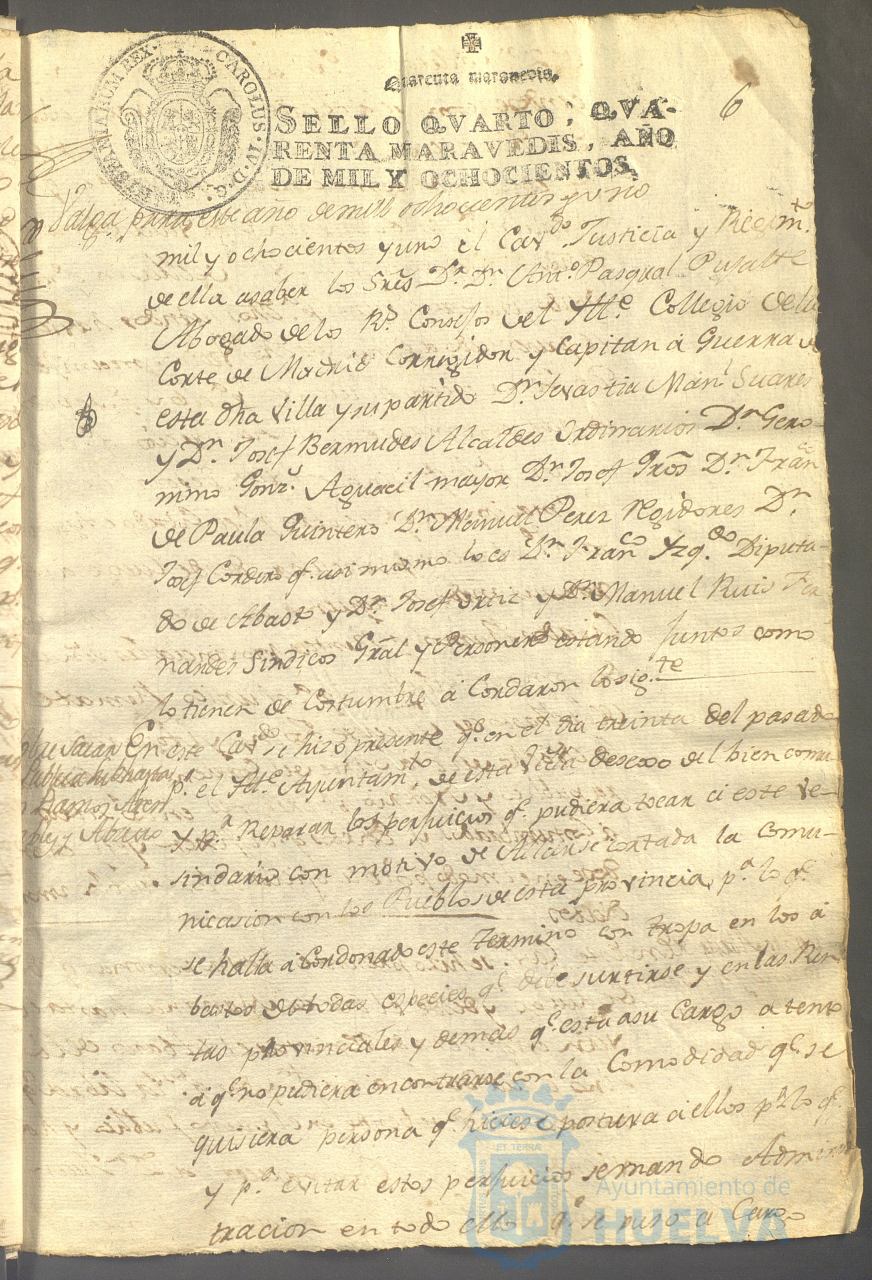 Quarenta maravedis.
6
HISPANIARUM REX · CAROLUS · IV · D · G ·
SELLO QVARTO, QVA-
RENTA MARAVEDIS, AÑO
DE MIL Y OCHOCIENTOS.
Valga para este año de mil ochocientos y uno
mil y ochocientos y uno el Cav.do Justicia y Regim.to
de ella a saber los Sres Dr. Dn Ant.o Pasqual Pusalte
Abogado de los R.s Consejos del Itt.e Collegio de la
Corte de Madrid Corregidor y Capitan á Guerra de
esta dha villa y su partido Dn Sevastia Man.l Suares
y Dn Josef Bermudes Alcaldes Ordinarios Dn Gero-
nimo Gonz.s Aguacil mayor Dn Josef Dn Fran.co
de Paula Quintero Dn Manuel Perez regidores Dn
Josef Cordero q.e asi mismo lo es Dn Fran.co Yzq.do Diputa-
do de Abasto y Dn Josef Ortiz y Dn Manuel Ruis Fer
nandes Sindicos Gral y Personero estando Juntos como
lo tienen de Costumbre á Cordaron lo sig.te
En este Cav.do se hizo presente q.e en el dia treinta del pasado
p.r el Itt.e Ayuntam.to de esta Villa deseoso del bien comun
y p.a Reparar los perjuicios q.e pudiera tocar á este ve-
sindario con motivo de allarse cortada la Comu-
nicasion con los Pueblos de esta provincia p.r lo q.e
se halla á Cordonado este Termino con tropa en los á
bastos de todas especies q.e debe surtirse y en las Ren
tas provinciales y demas q.e esta a su Cargo a tento
á q.e no pudiera encontrarse con la Comodidad q.e se
quisiera persona q.e hiciese postura á ellos p.r lo q.e
y p.a evitar estos perjuicios se mando Adminis
tracion en todo ello q.e se puso a Cargo
Ayuntamiento de
HUELVA